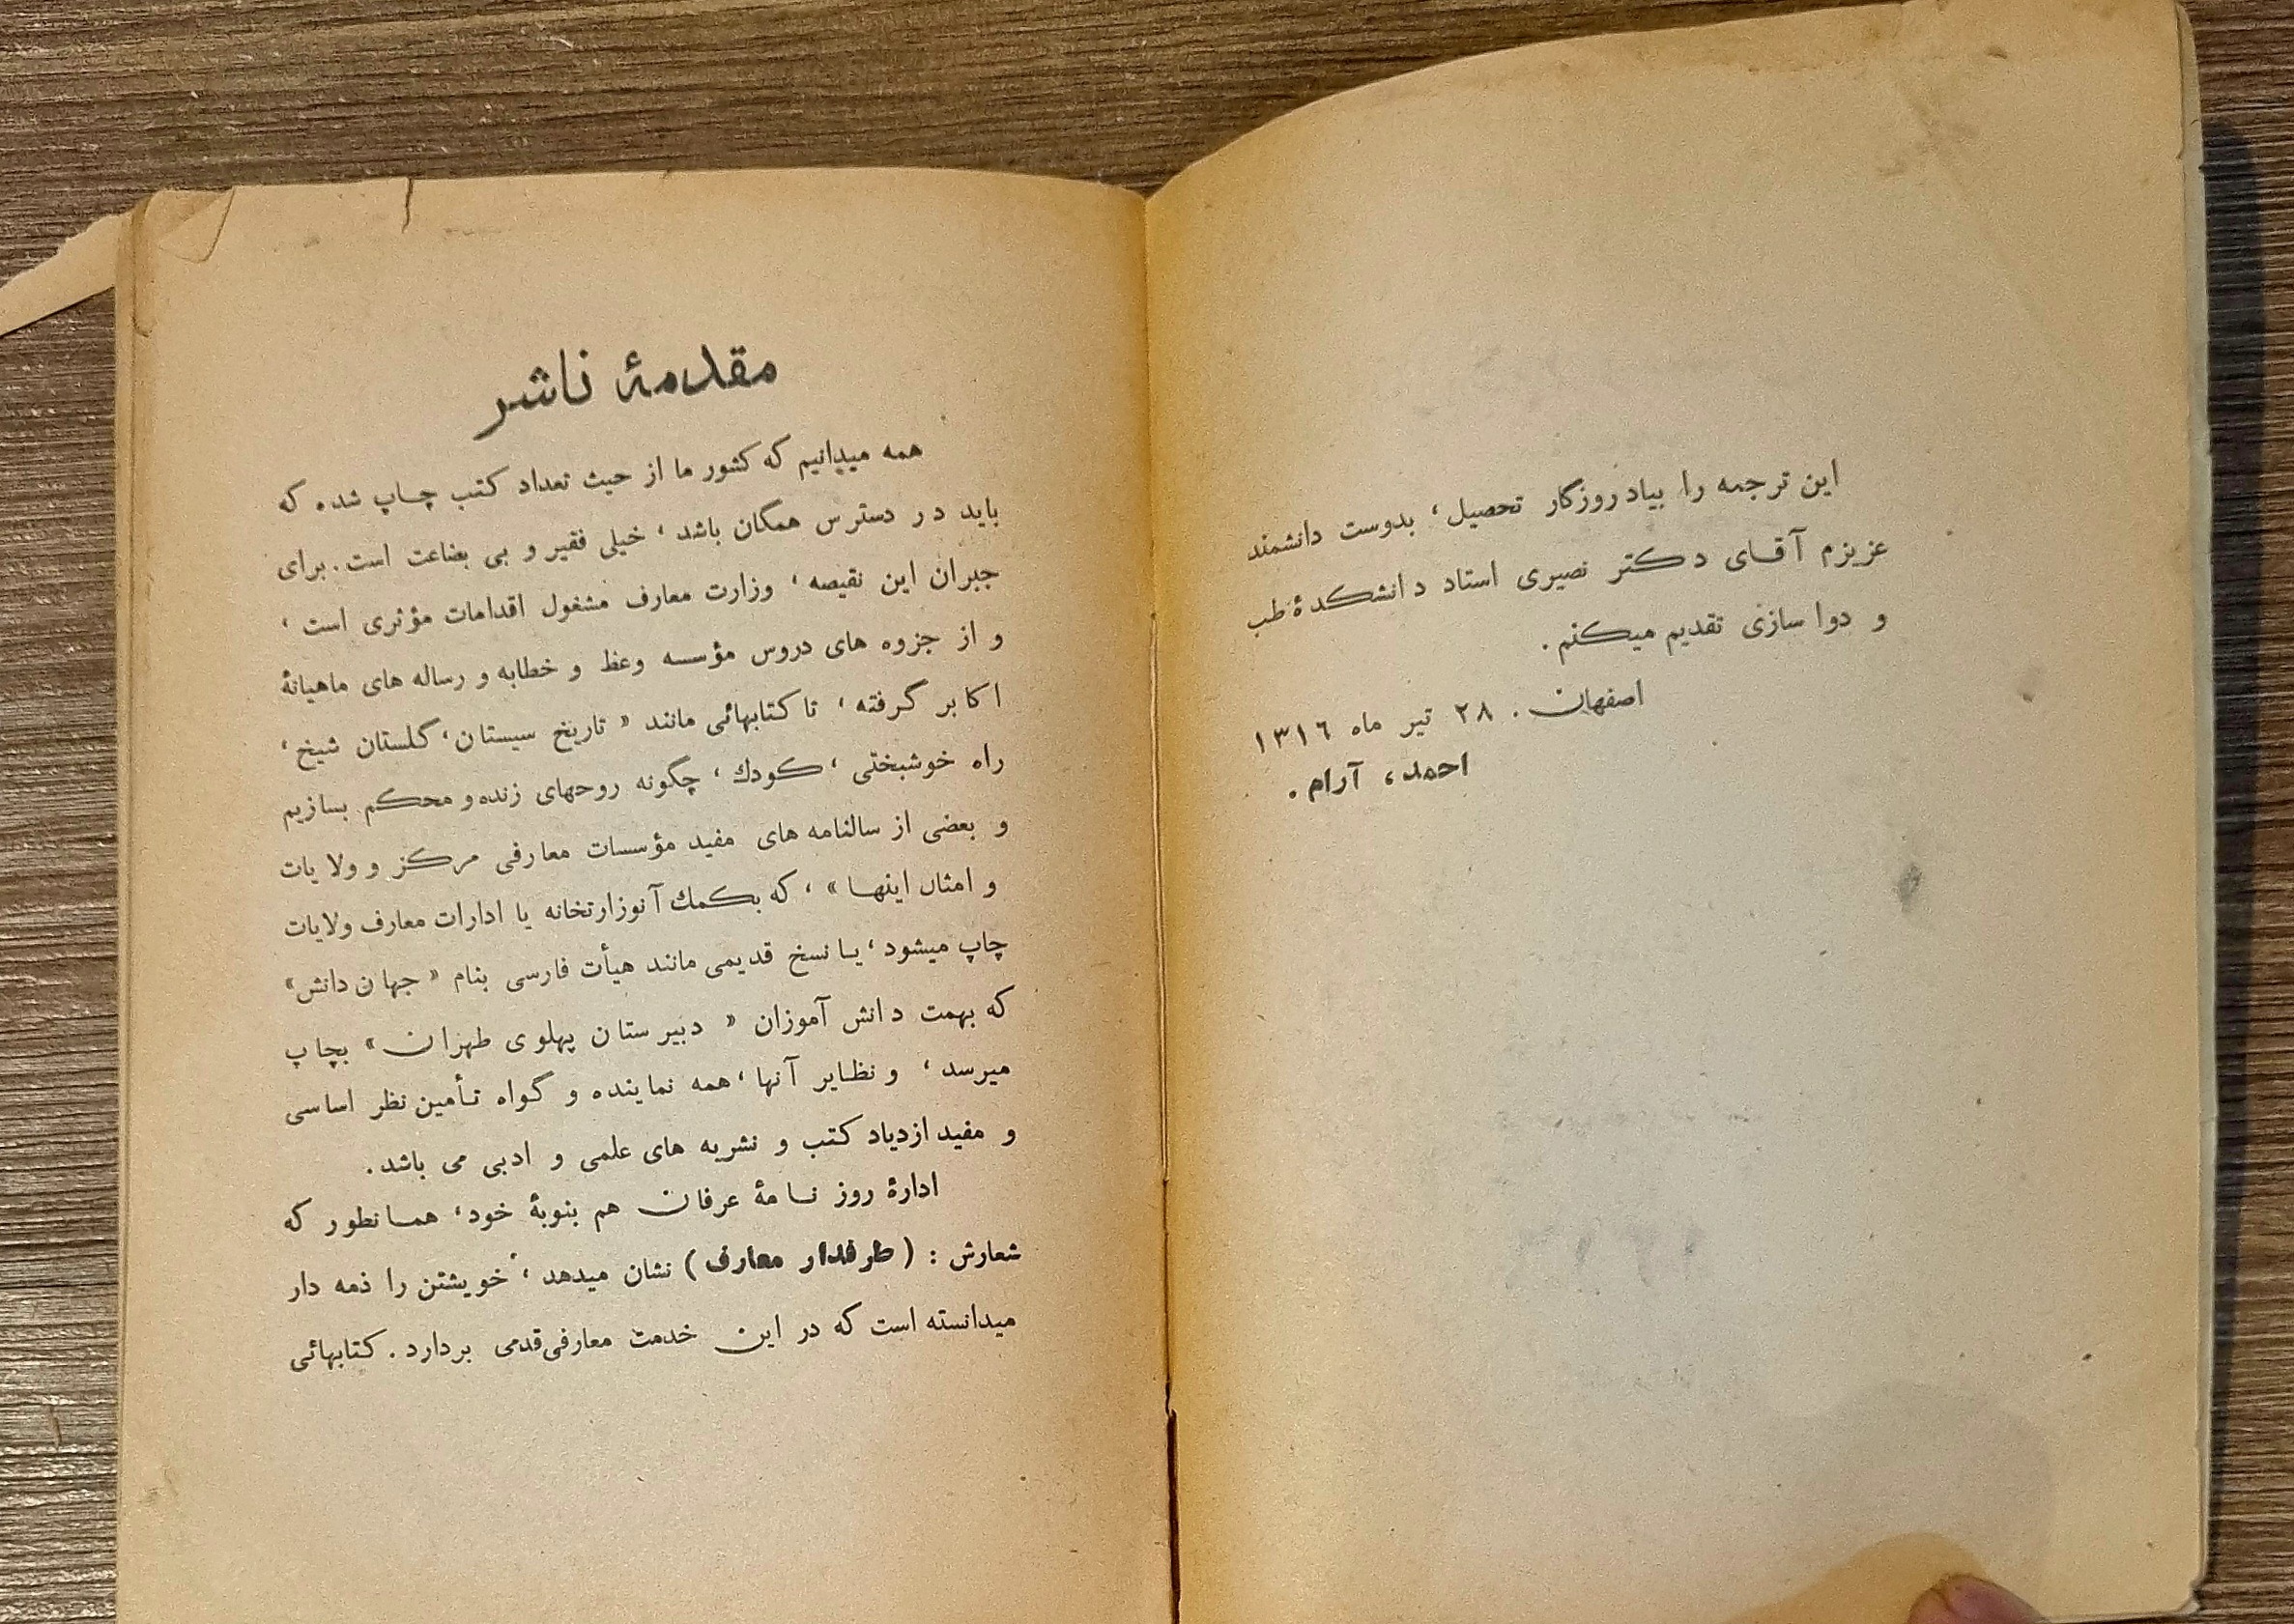 این ترجمه را بیاد روزگار تحصیل، بدوست دانشمند
عزیزم آقای دکتر نصیری استاد دانشکدهٔ طب
و دوا سازی تقدیم میکنم.
اصفهان. ۲۸ تیر ماه ۱۳۱٦
احمد، آرام.
مقدمهٔ ناشر
همه میدانیم که کشور ما از حیث تعداد کتب چاپ شده که
باید در دسترس همگان باشد، خیلی فقیر و بی بضاعت است. برای
جبران این نقیصه، وزارت معارف مشغول اقدامات مؤثری است،
و از جزوه های دروس مؤسسه وعظ و خطابه و رساله های ماهیانهٔ
اکابر گرفته، تا کتابهائی مانند « تاریخ سیستان، گلستان شیخ،
راه خوشبختی، کودك، چگونه روحهای زنده و محکم بسازیم
و بعضی از سالنامه های مفید مؤسسات معارفی مرکز و ولایات
و امثال اینها »، که بکمك آنوزارتخانه یا ادارات معارف ولایات
چاپ میشود، یا نسخ قدیمی مانند هیأت فارسی بنام « جهان دانش»
که بهمت دانش آموزان « دبیرستان پهلوی طهران » بچاپ
میرسد، و نظایر آنها، همه نماینده و گواه تأمین نظر اساسی
و مفید ازدیاد کتب و نشریه های علمی و ادبی می باشد.
ادارهٔ روز نامهٔ عرفان هم بنوبهٔ خود، همانطور که
شعارش : ( طرفدار معارف ) نشان میدهد، خویشتن را ذمه دار
میدانسته است که در این خدمت معارفی قدمی بردارد. کتابهائی